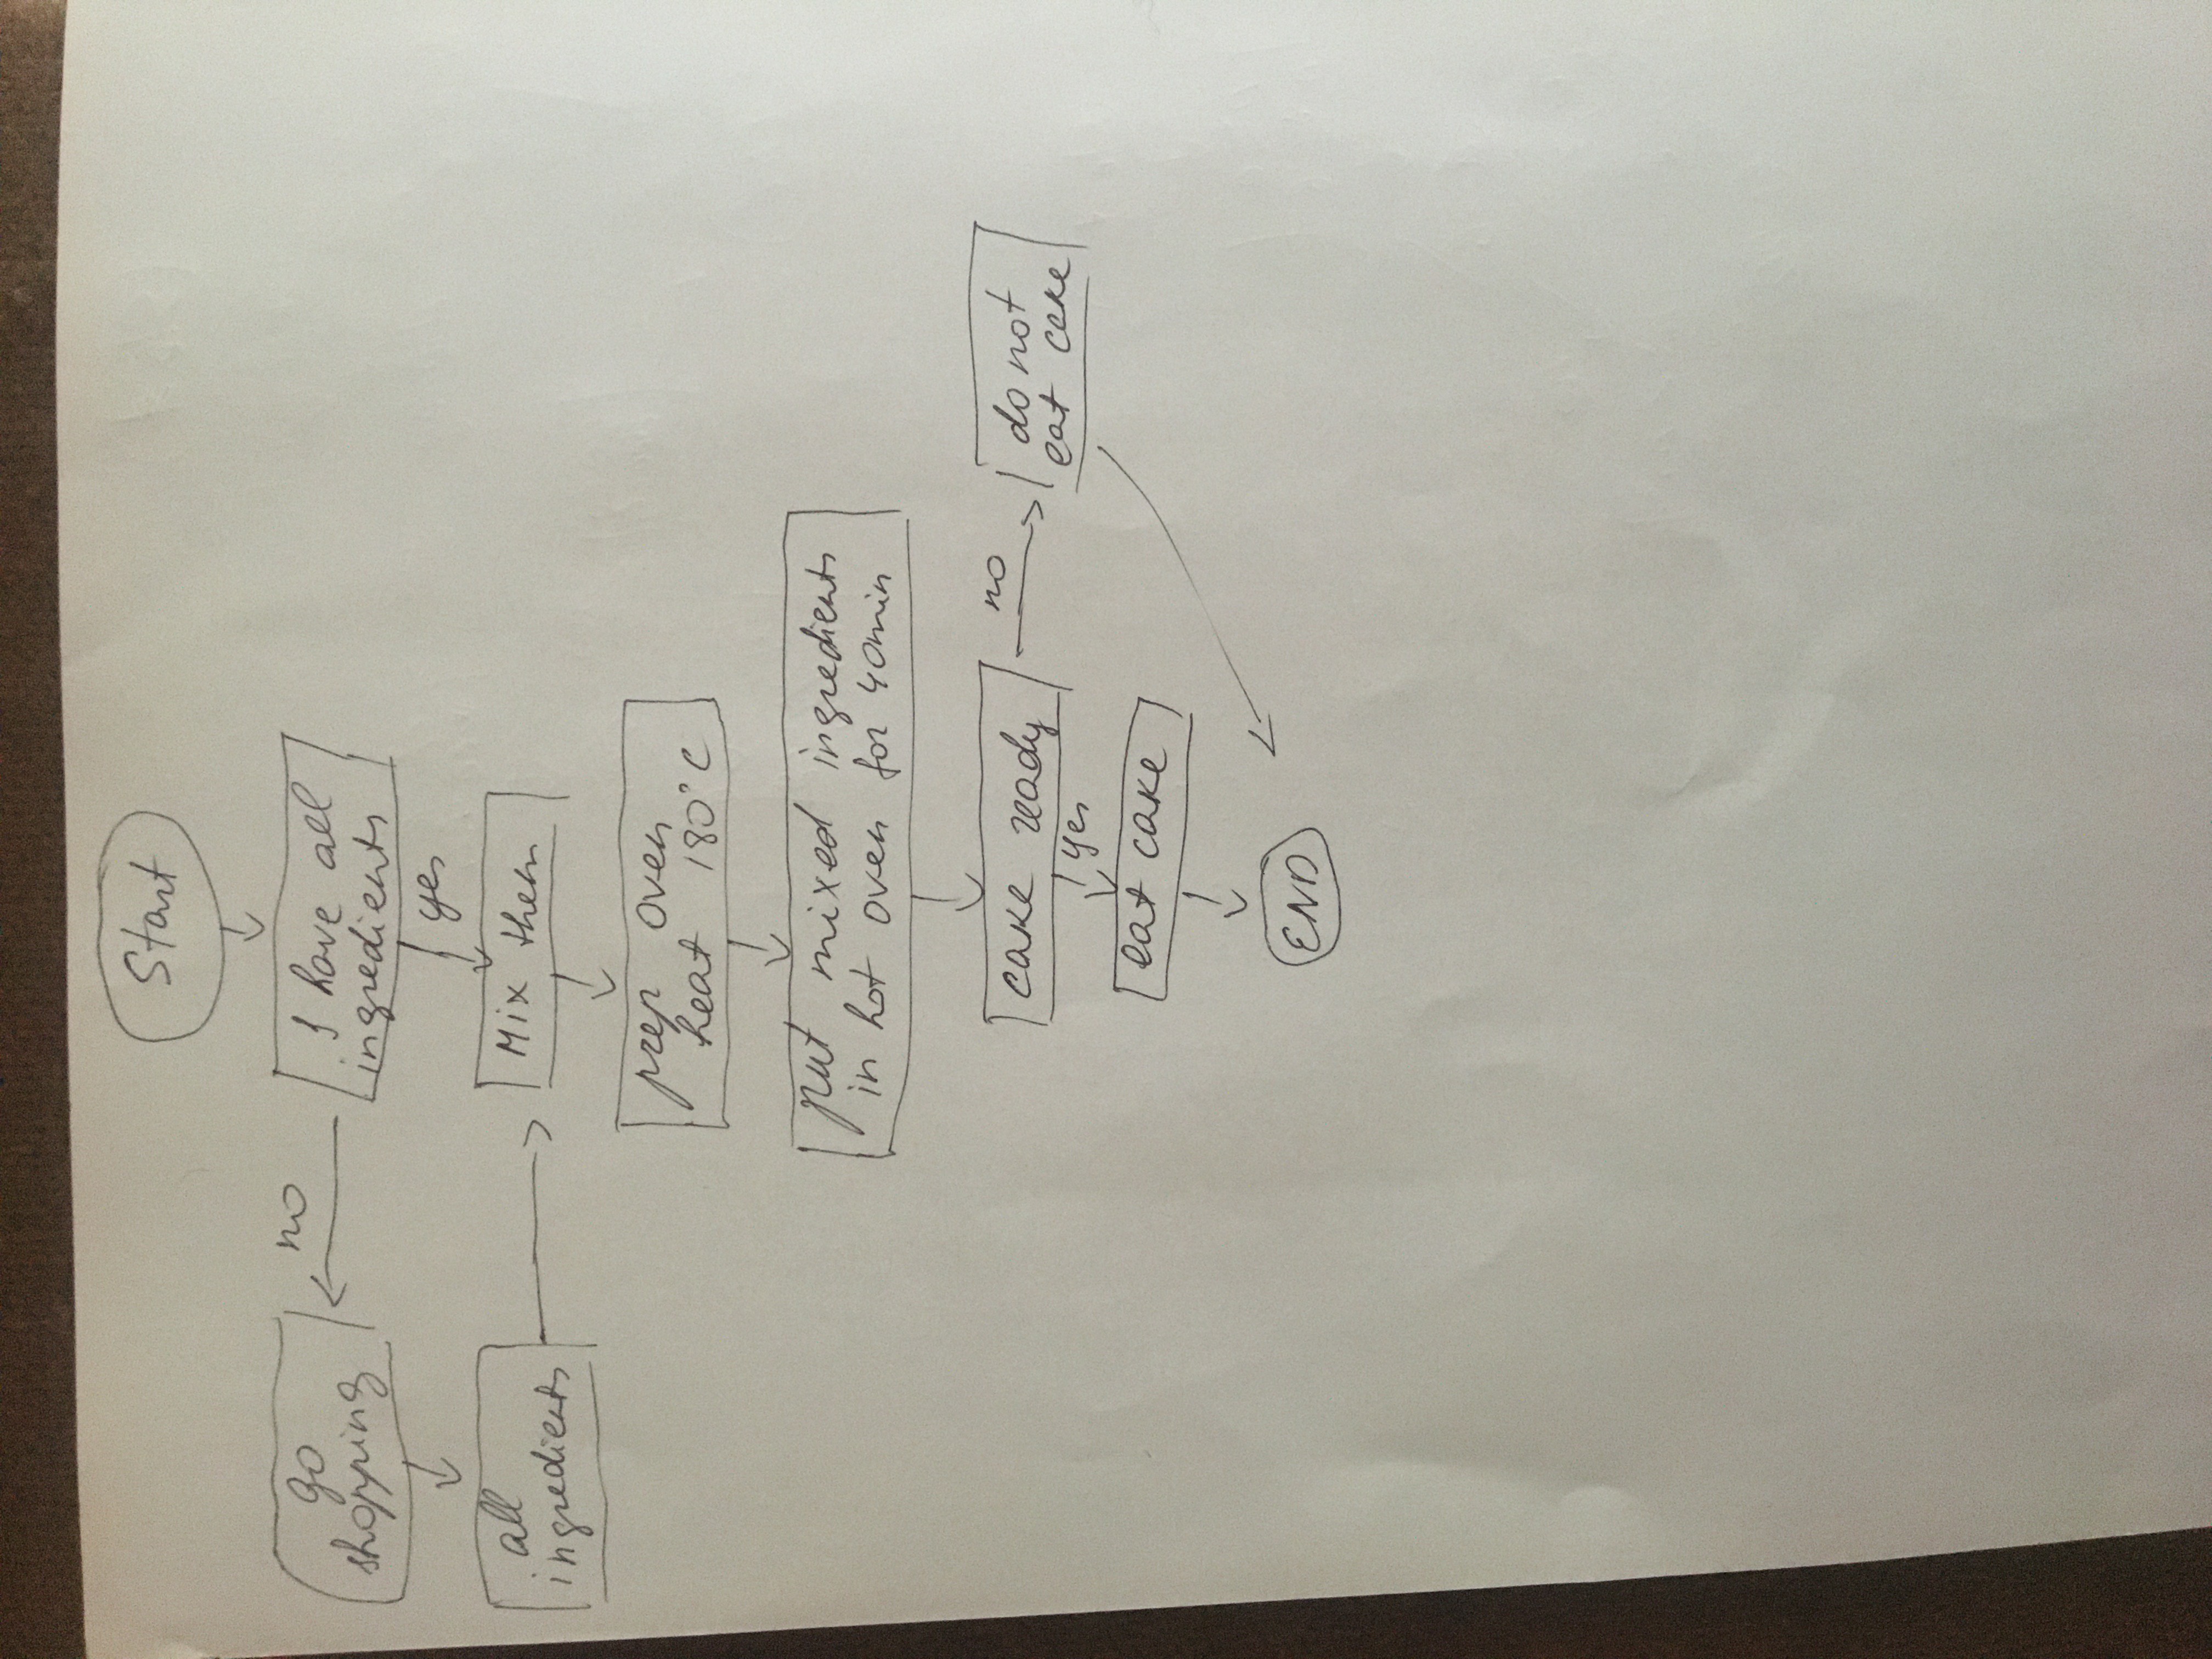 Start
no
go
shopping
I have all
ingredients
yes
all
ingredients
Mix them
prep oven
heat 180°C
put mixed ingredients
in hot oven for 40min
cake ready
no
do not
eat cake
yes
eat cake
END